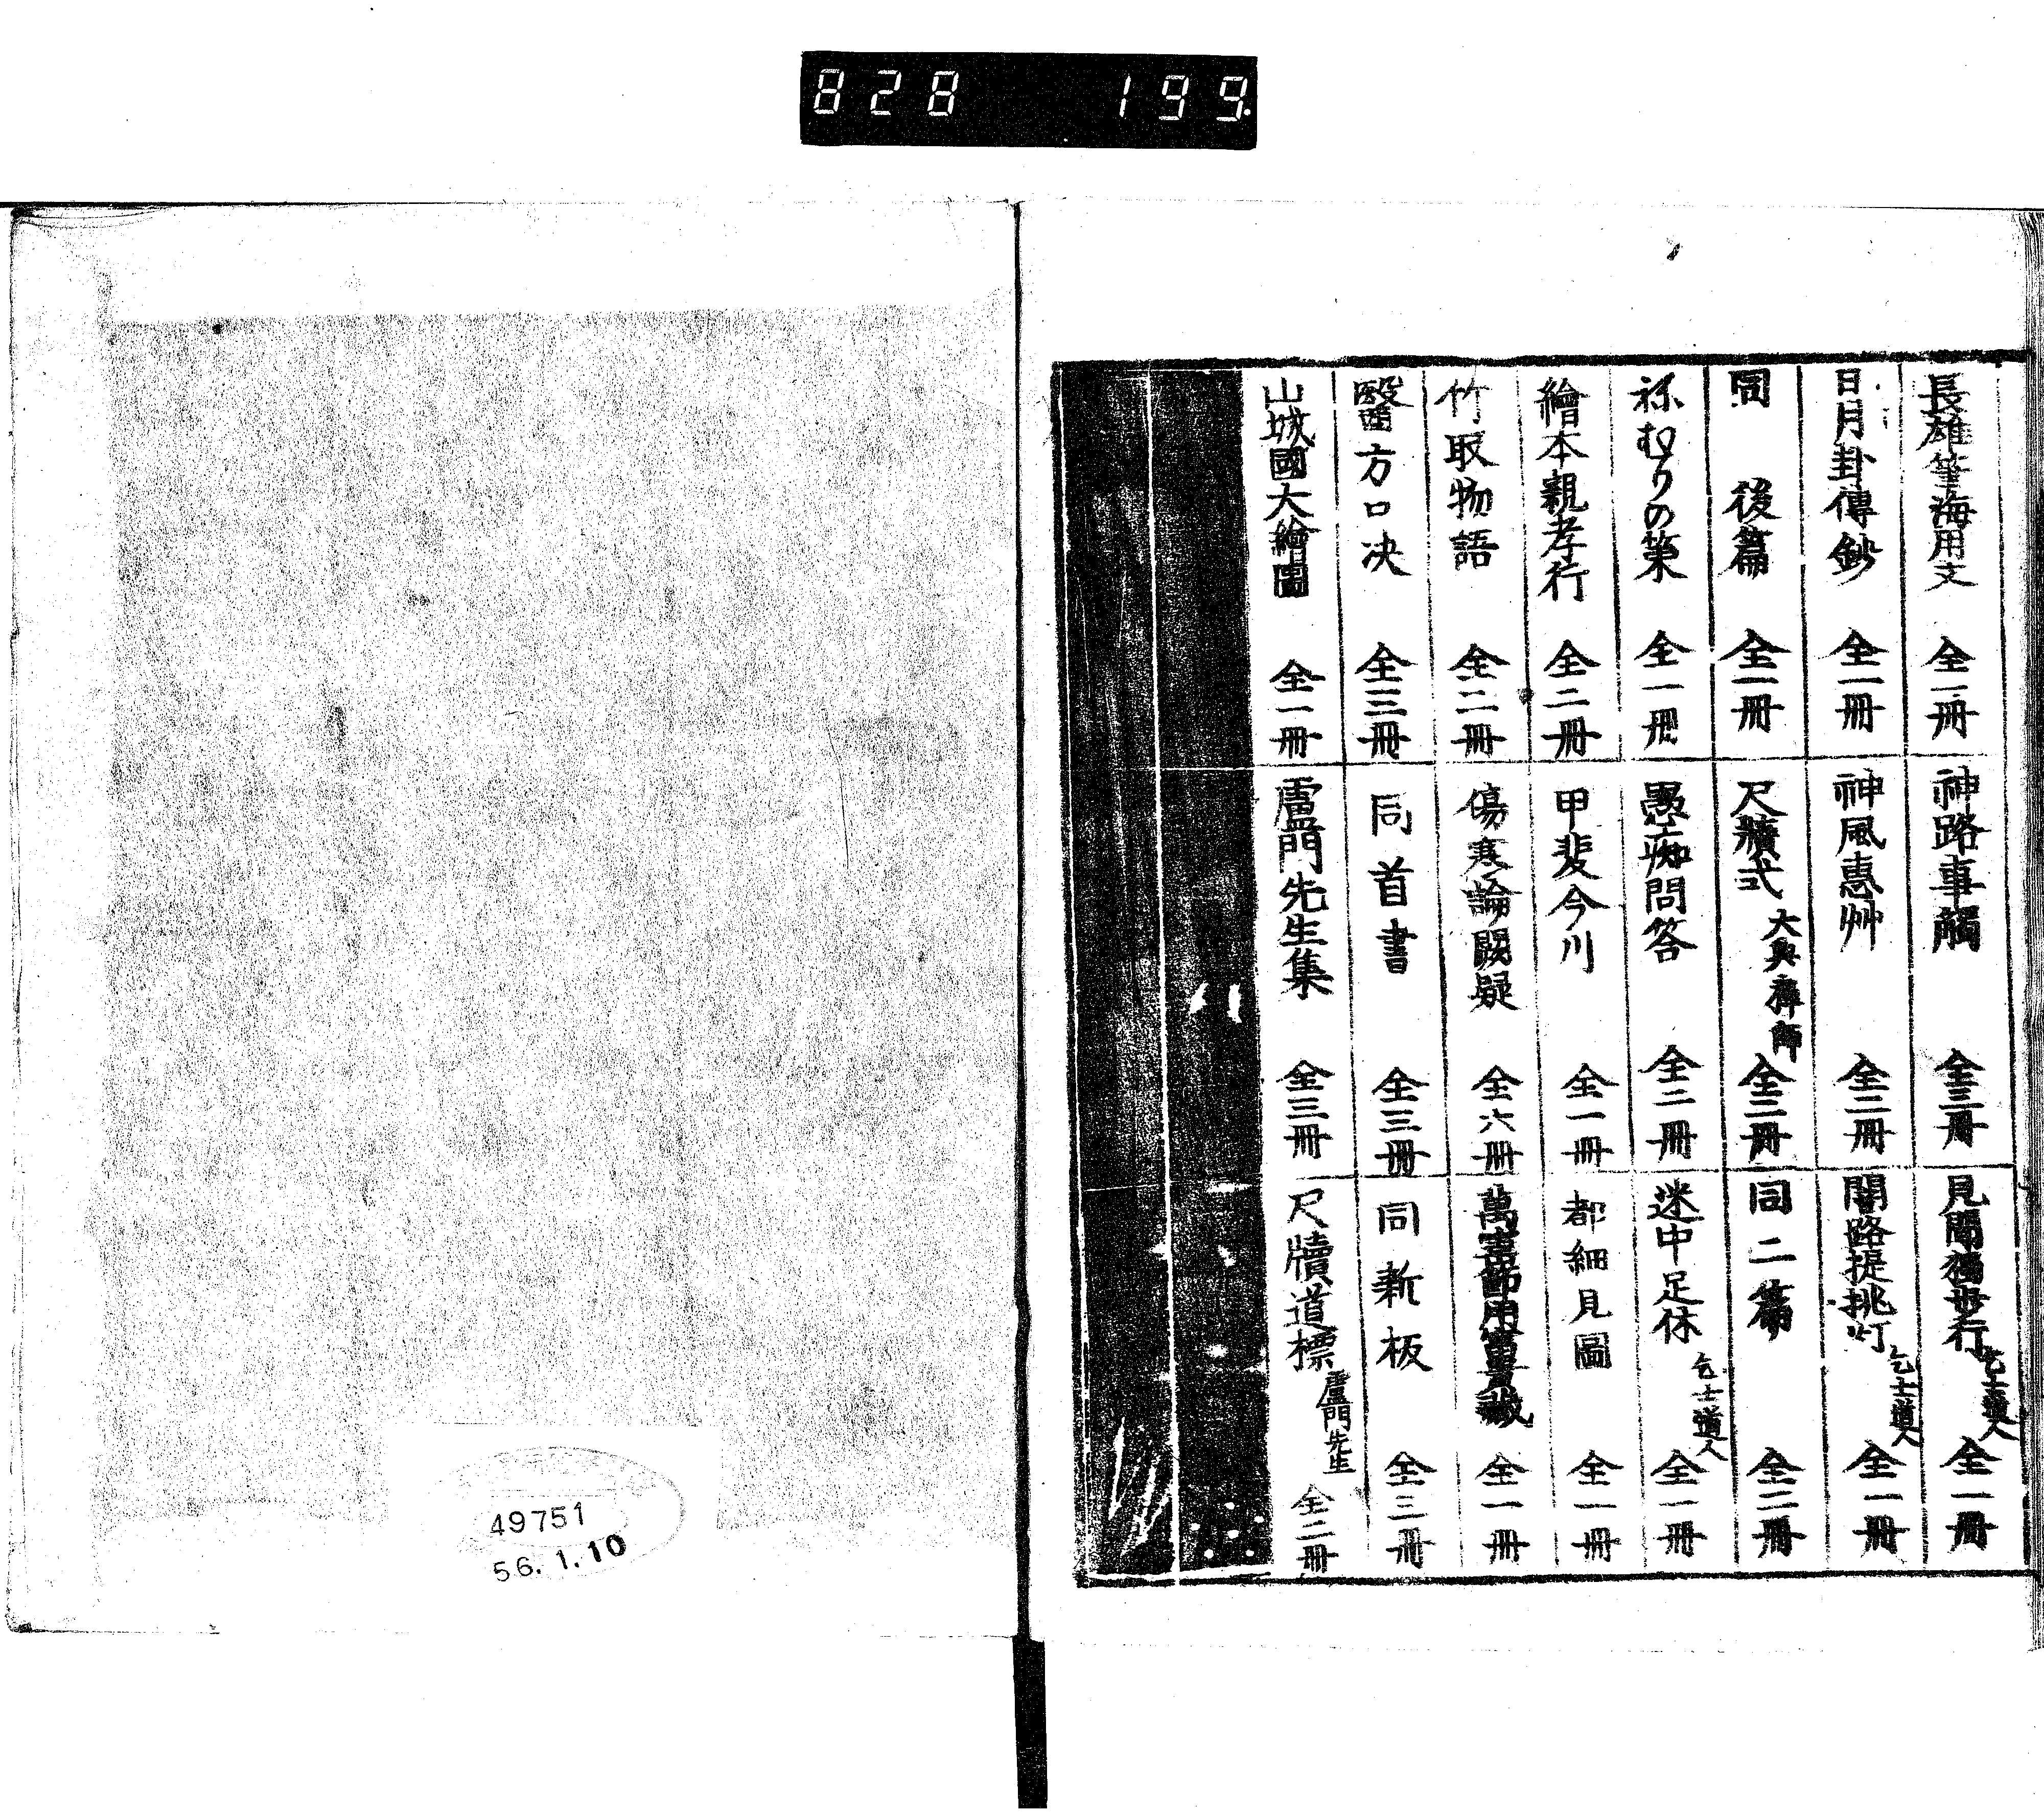 828 199.
長雄筆海用文 全一冊
神路車觸 全三冊
見聞獨歩行 乞士道人 全一冊
日月卦傳鈔 全一冊
神風惠艸 全二冊
闇路提挑灯 乞士道人 全一冊
同 後篇 全一冊
尺牘式 大典禅師 全二冊
同二篇 全二冊
祢むりの策 全一冊
愚痴問答 全二冊
迷中足休 乞士道人 全一冊
繪本親孝行 全二冊
甲斐今川 全一冊
都細見圖 全一冊
竹取物語 全二冊
傷寒論闕疑 全六冊
萬寳節用冨貴蔵 全一冊
醫方口决 全三冊
同首書 全三冊
同新板 全三冊
山城國大繪圖 全一冊
盧門先生集 全三冊
尺牘道標 盧門先生 全二冊
49751
56.1.10